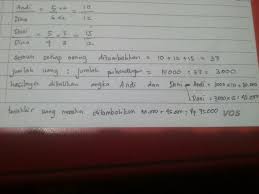 Andi = 5 × 2 = 10
Dina 6 × 2 12
Doni = 5 × 3 = 15
Dina 4 3 12
setiap orang ditambahkan = 10 + 12 + 15 = 37
jumlah uang : jumlah perbandingan = 111000 : 37 = 3000
hasilnya dikalikan angka Andi dan Doni - Andi = 3000 × 10 = 30.000
Doni = 3000 × 15 = 45.000
terakhir uang mereka ditambahkan 30.000 + 45.000 = Rp 75.000 VOS